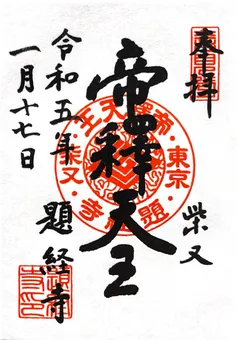 奉拝
柴又
帝釋天王
題経寺
令和五年
一月十七日
東京・柴又
帝釋天王
題経寺